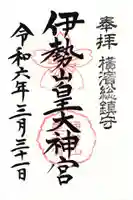 奉拝
横濱総鎮守
伊勢山皇大神宮
令和六年三月三十一日